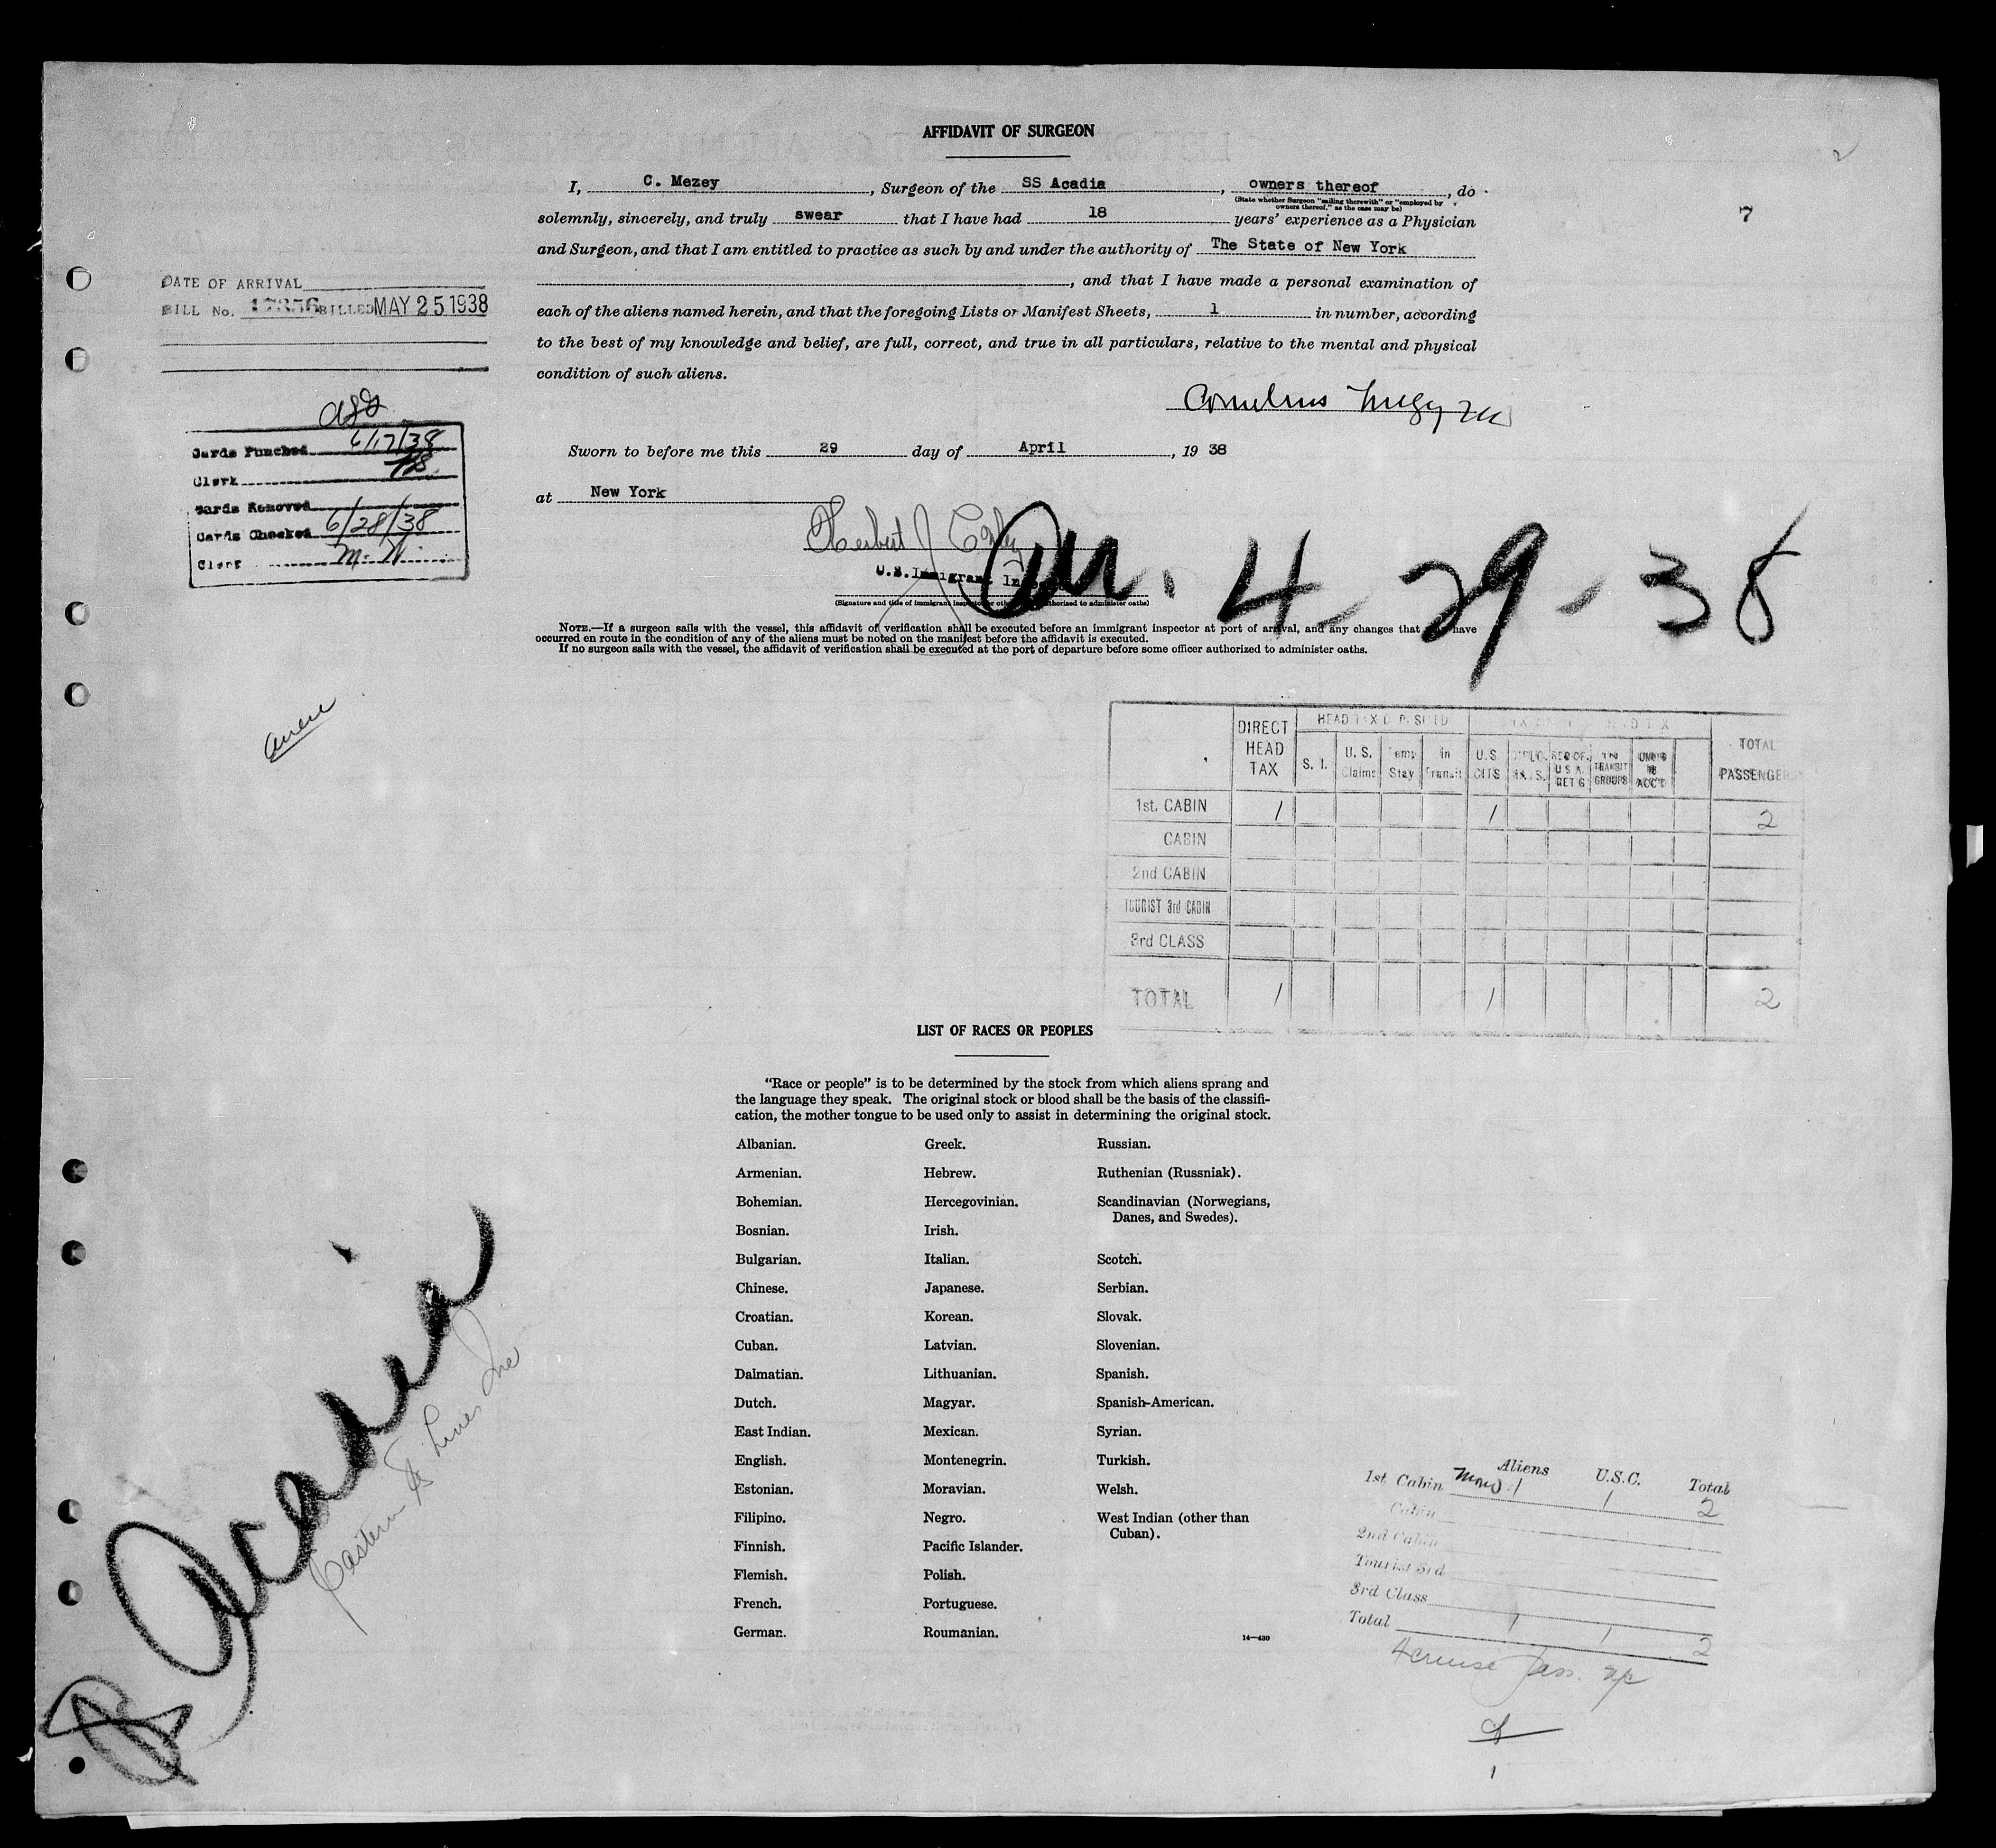 AFFIDAVIT OF SURGEON
I, C. Mezey, Surgeon of the SS Acadia, owners thereof, do
(State whether Surgeon "sailing therewith" or "employed by
owners thereof," as the case may be)
solemnly, sincerely, and truly swear that I have had 18 years' experience as a Physician
7
and Surgeon, and that I am entitled to practice as such by and under the authority of The State of New York
, and that I have made a personal examination of
each of the aliens named herein, and that the foregoing Lists or Manifest Sheets, 1 in number, according
to the best of my knowledge and belief, are full, correct, and true in all particulars, relative to the mental and physical
condition of such aliens.
DATE OF ARRIVAL
BILL No. 17356 BILLED MAY 25 1938
Cornelius Mezey MD
Cards Punched 6/17/38
Clerk
Cards Removed
Cards Checked 6/28/38
Clerk M. N.
Sworn to before me this 29 day of April, 19 38
at New York
Herbert J
U.S. Immigrant In
4-29-38
(Signature and title of immigrant inspector or other authorized to administer oaths)
NOTE.—If a surgeon sails with the vessel, this affidavit of verification shall be executed before an immigrant inspector at port of arrival, and any changes that have
occurred en route in the condition of any of the aliens must be noted on the manifest before the affidavit is executed.
If no surgeon sails with the vessel, the affidavit of verification shall be executed at the port of departure before some officer authorized to administer oaths.
DIRECT HEAD TAX
HEAD TAX DEPOSITED
S. I.
U. S. Claims
Temp Stay
in Transit
U.S CITS
RES OF U S A RET G
IN TRANSIT GROUPS
UNDER 16 ACC'D
TOTAL PASSENGERS
1st. CABIN 1 1 2
CABIN
2nd CABIN
TOURIST 3rd CABIN
3rd CLASS
TOTAL 1 1 2
LIST OF RACES OR PEOPLES
"Race or people" is to be determined by the stock from which aliens sprang and
the language they speak. The original stock or blood shall be the basis of the classifi-
cation, the mother tongue to be used only to assist in determining the original stock.
Albanian.
Armenian.
Bohemian.
Bosnian.
Bulgarian.
Chinese.
Croatian.
Cuban.
Dalmatian.
Dutch.
East Indian.
English.
Estonian.
Filipino.
Finnish.
Flemish.
French.
German.
Greek.
Hebrew.
Hercegovinian.
Irish.
Italian.
Japanese.
Korean.
Latvian.
Lithuanian.
Magyar.
Mexican.
Montenegrin.
Moravian.
Negro.
Pacific Islander.
Polish.
Portuguese.
Roumanian.
Russian.
Ruthenian (Russniak).
Scandinavian (Norwegians,
Danes, and Swedes).
Scotch.
Serbian.
Slovak.
Slovenian.
Spanish.
Spanish-American.
Syrian.
Turkish.
Welsh.
West Indian (other than
Cuban).
14—430
SS Acadia
Eastern SS Lines Inc
Aliens U.S.C. Total
1st. Cabin 1 1 2
Cabin
2nd Cabin
Tourist 3rd
3rd Class
Total 1 1 2
4 cruise Pass.
1